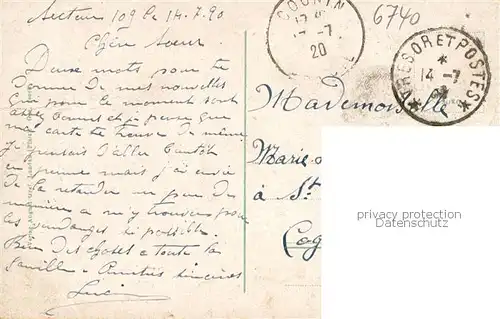 Secteur 109 le 14.7.20
Chère Soeur
Deux mots pour te
donner de mes nouvelles
que pour le moment sont
assez bonnes et je pense que
ma carte te trouve de même
Je pensais d'aller bientôt
en perme mais j'ai envie
de la retarder un peu de
manière a m'y trouver pour
les vendanges si possible.
Bien des choses a toute la
famille. Amitiés sincères
6740
COGNIN
7-7
20
TRESOR ET POSTES
14-7
Mademoiselle
Marie
à St
Cog
privacy protection watermark